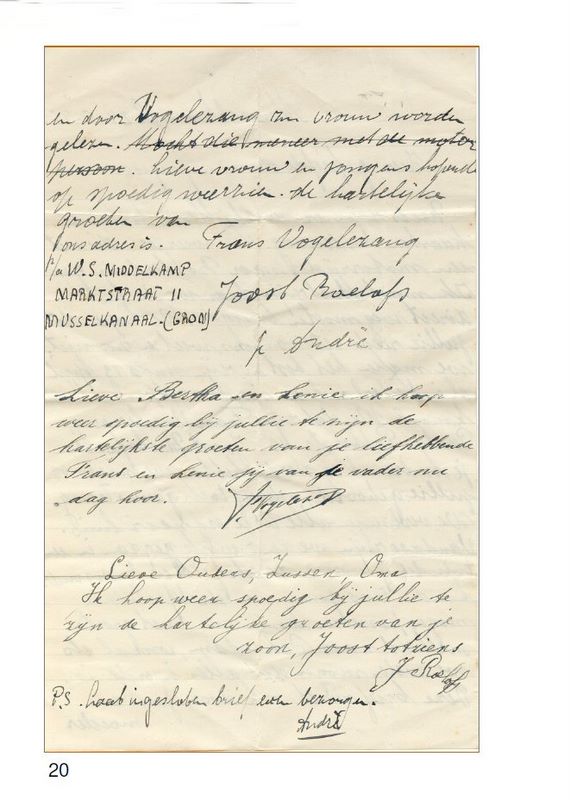 en door Vogelezang zn vrouw worden
gelezen. Mocht die meneer met de motor
persoon. Lieve vrouw en jongens hopende
op spoedig weerzien. de hartelijke
groeten van
ons adres is. Frans Vogelezang
p/a W.S. MIDDELKAMP
MARKTSTRAAT 11
MUSSELKANAAL. (GRON)
Joost Roelofs
André
Lieve Bertha en Lenie ik hoop
weer spoedig bij jullie te zijn de
hartelijkste groeten van je liefhebbende
Frans en Lenie jij van je vader nu
dag hoor.
F Vogelezang
Lieve Ouders, Zussen, Oma
Ik hoop weer spoedig bij jullie te
zijn de hartelijke groeten van je
zoon, Joost tot ziens
J Roelofs
P.S. Laat ingesloten brief even bezorgen.
André
20